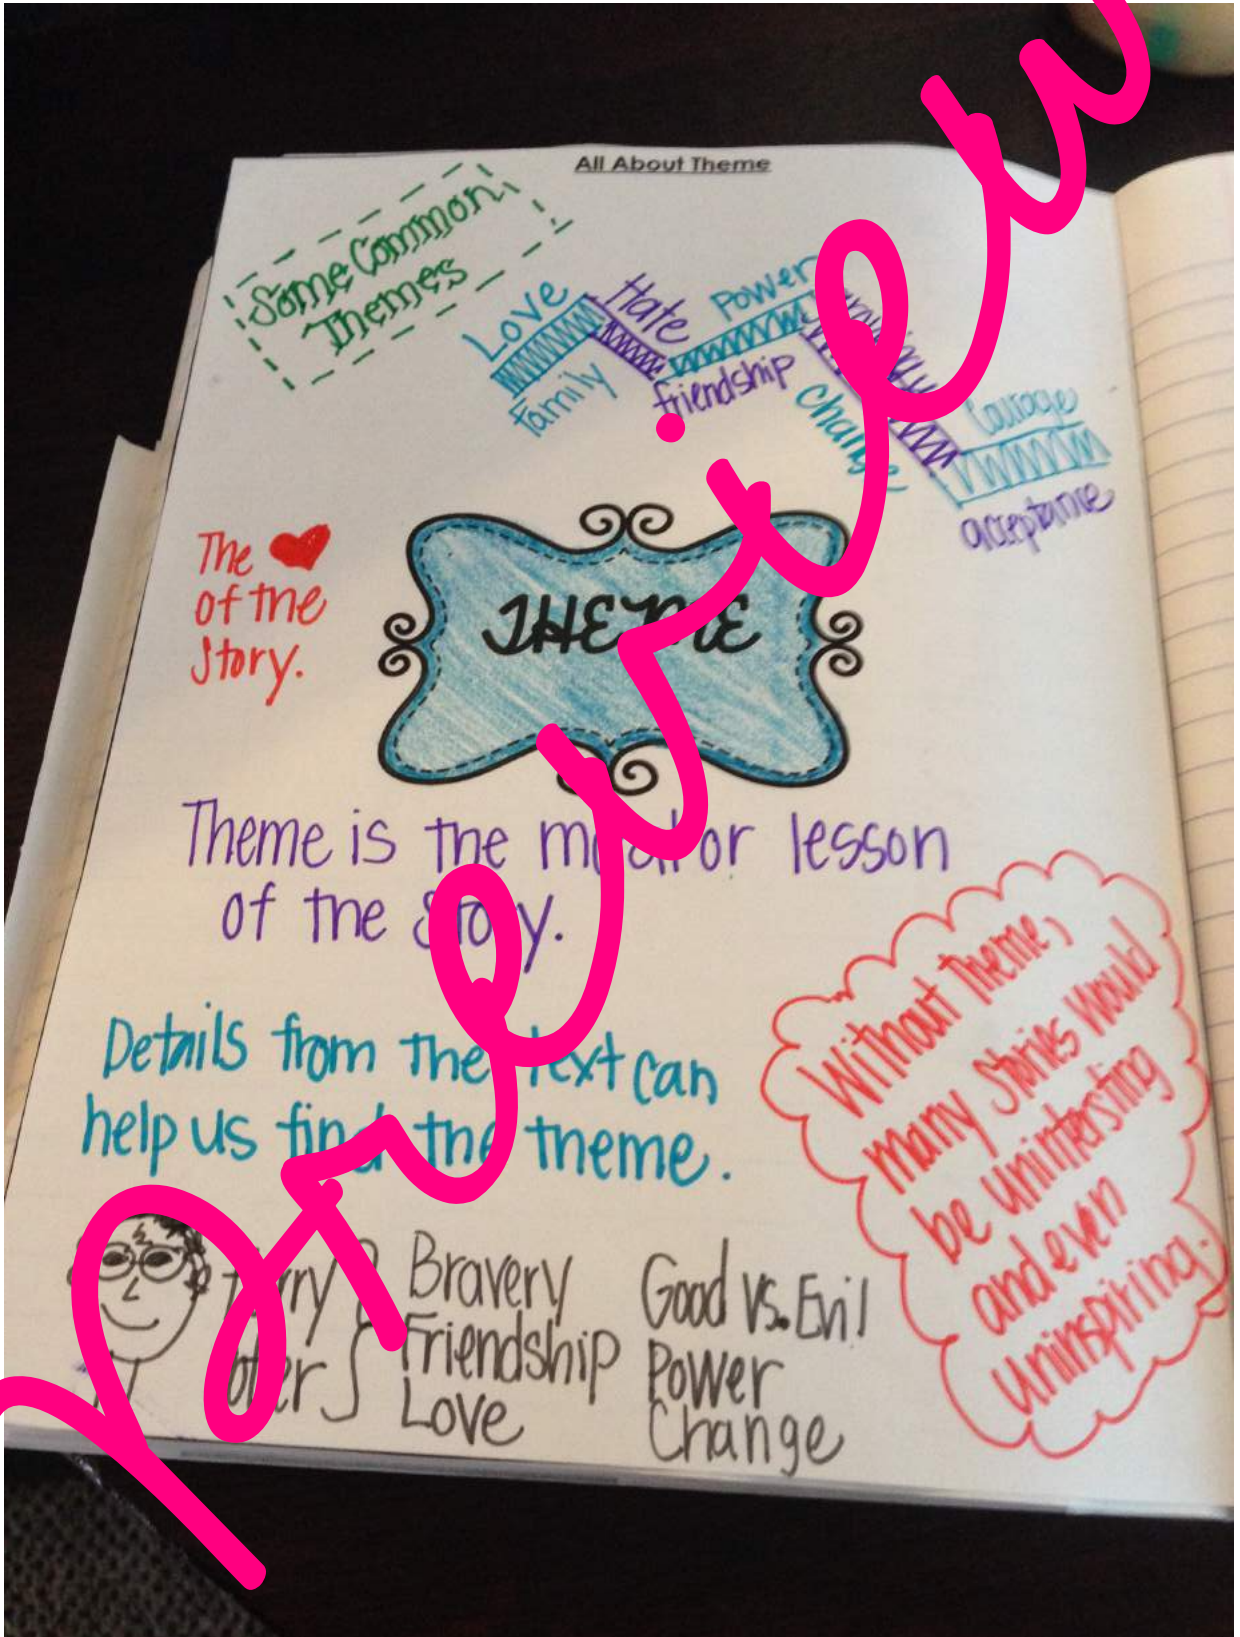 All About Theme
Some Common
Themes
Love
Hate
Power
Family
friendship
change
Courage
acceptance
The ❤
of the
Story.
THEME
Theme is the moral or lesson
of the story.
Details from the text can
help us find the theme.
Without theme,
many stories would
be unintersting
and even
uninspiring.
Harry
Potter
Bravery
Friendship
Love
Good vs. Evil
Power
Change
preview